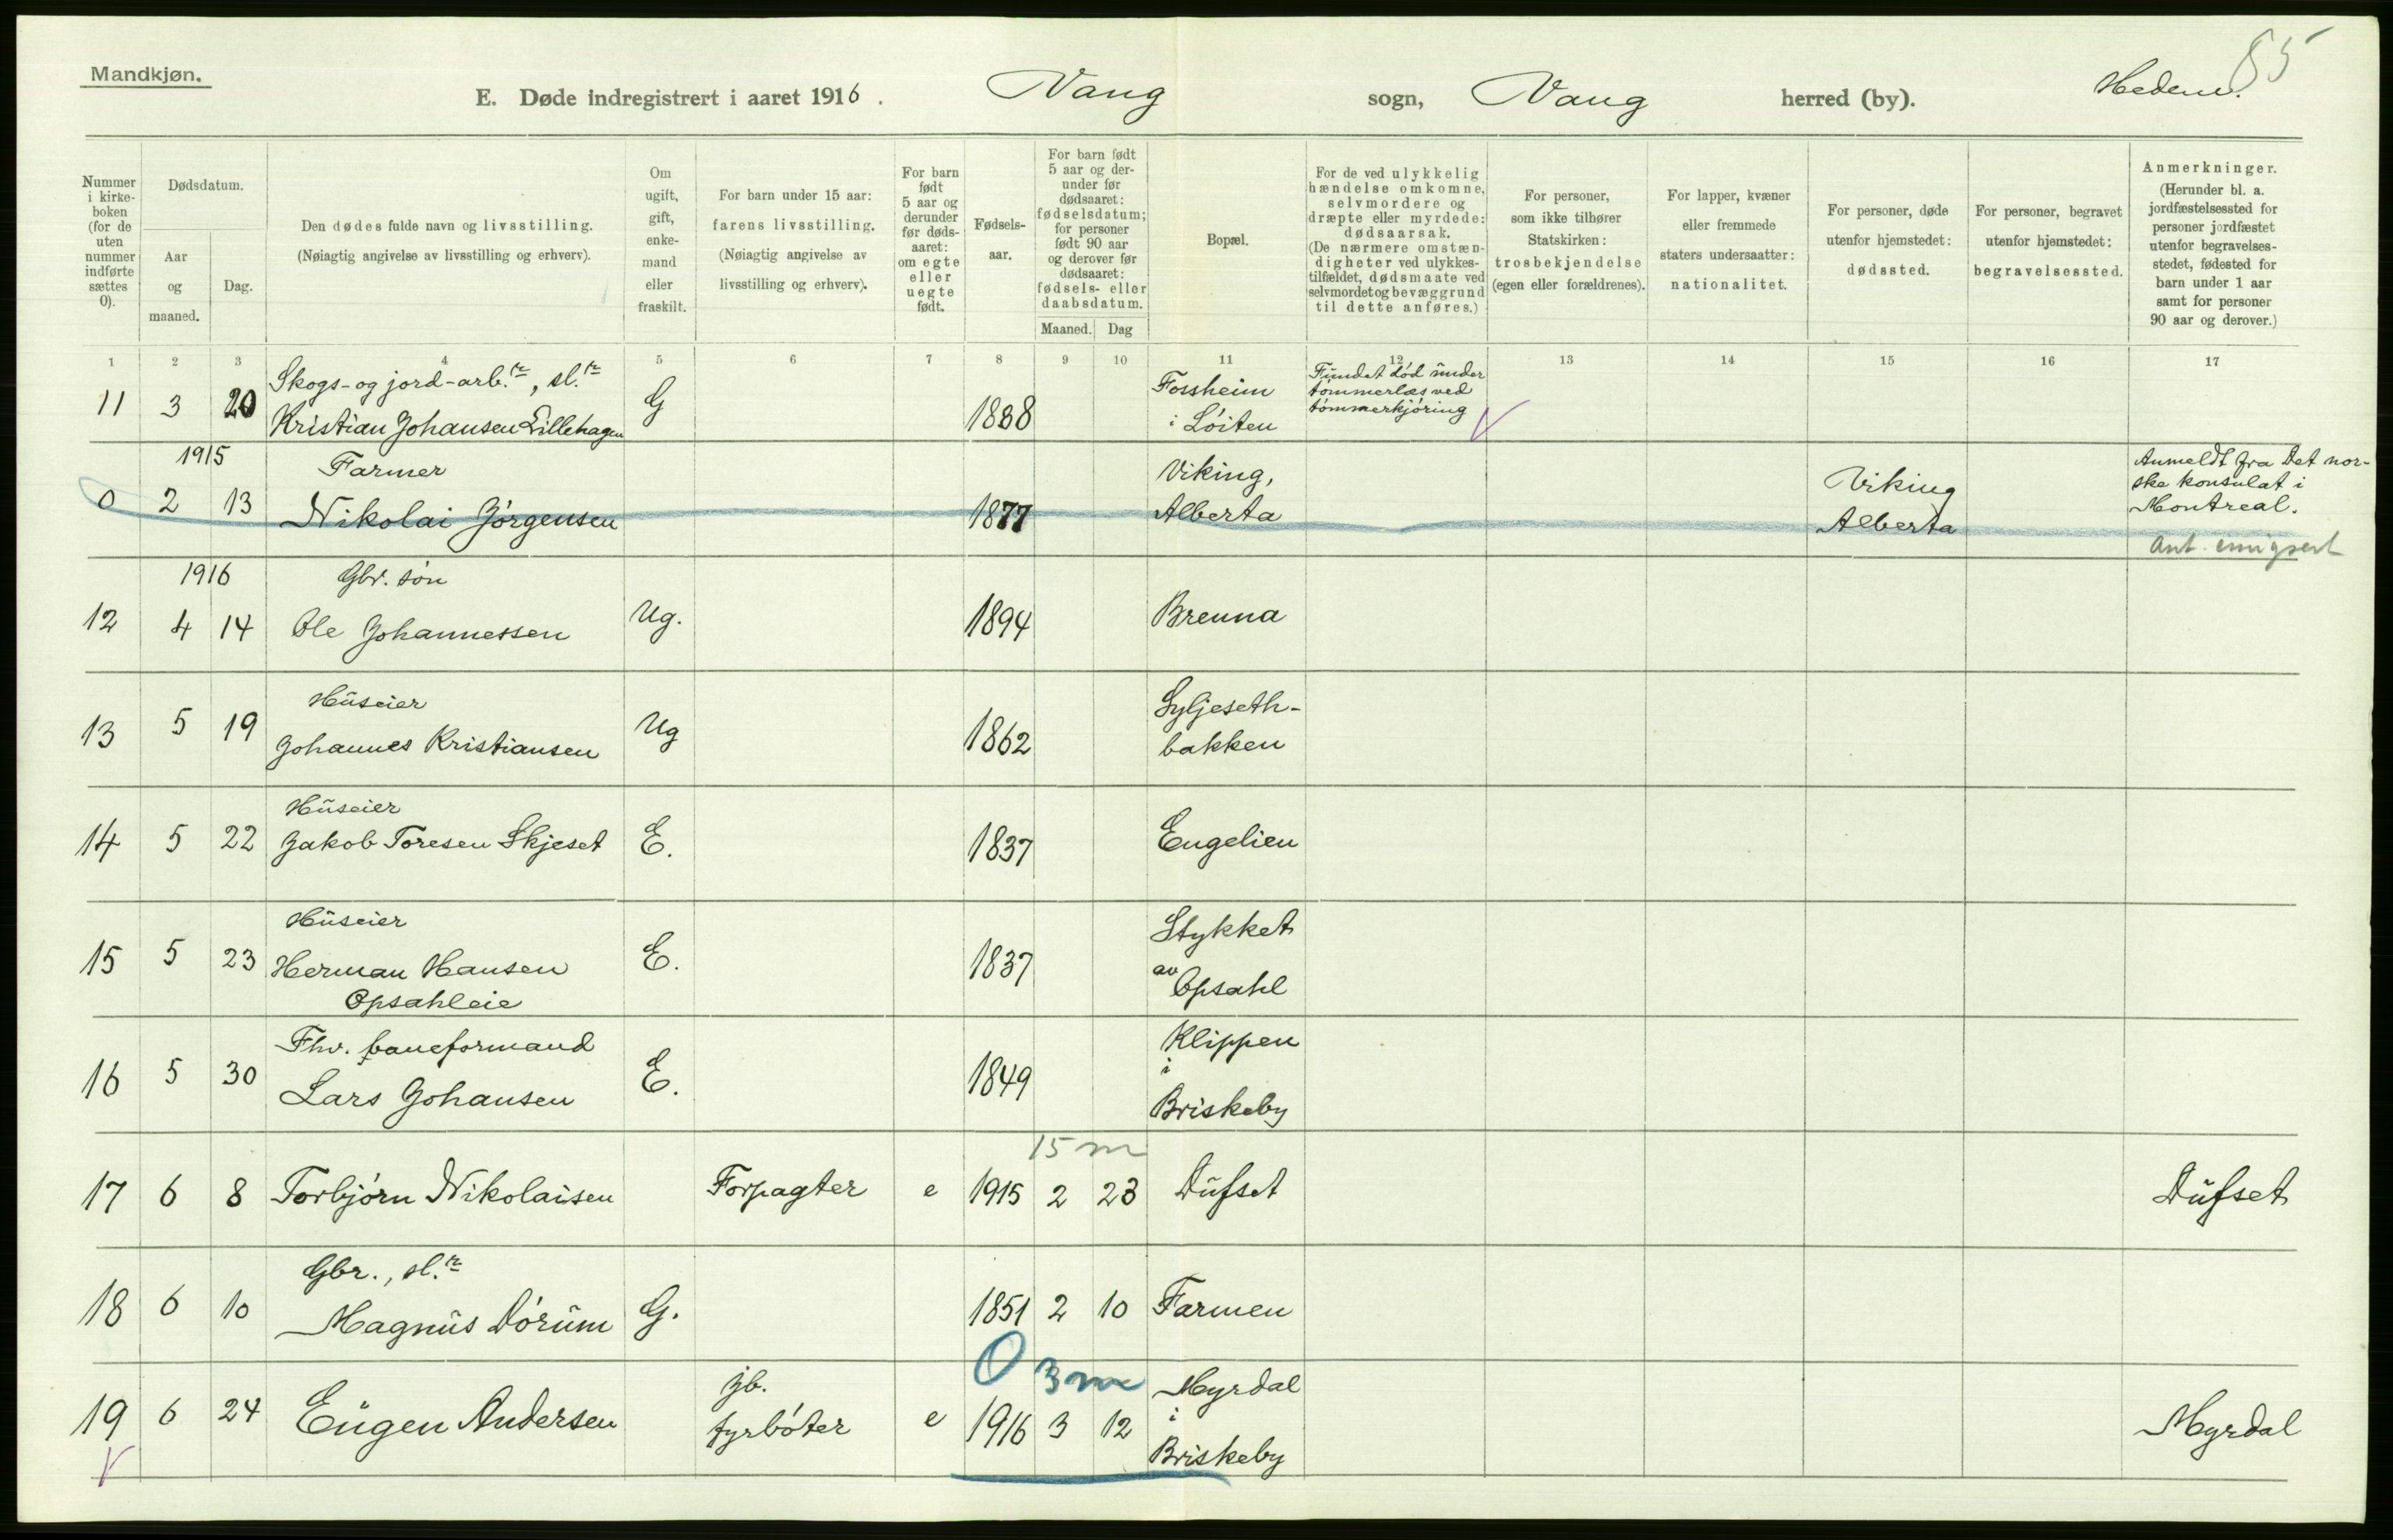 Mandkjøn.
85
E. Døde indregistrert i aaret 1916. Vang sogn, Vang herred (by). Hedem.
Nummer i kirke-boken (for de uten nummer indførte sættes 0).
Dødsdatum.
Aar og maaned.
Dag.
Den dødes fulde navn og livsstilling.
(Nøiagtig angivelse av livsstilling og erhverv).
Om ugift, gift, enke-mand eller fraskilt.
For barn under 15 aar:
farens livsstilling.
(Nøiagtig angivelse av livsstilling og erhverv).
For barn født 5 aar og derunder før døds-aaret: om egte eller uegte født.
Fødsels-aar.
For barn født 5 aar og der-under før dødsaaret: fødselsdatum; for personer født 90 aar og derover før dødsaaret: fødsels- eller daabsdatum.
Maaned. Dag
Bopæl.
For de ved ulykkelig hændelse omkomne, selvmordere og dræpte eller myrdede: dødsaarsak.
(De nærmere omstæn-digheter ved ulykkes-tilfældet, dødsmaate ved selvmordet og bevæggrund til dette anføres.)
For personer, som ikke tilhører Statskirken: trosbekjendelse (egen eller forældrenes).
For lapper, kvæner eller fremmede staters undersaatter: nationalitet.
For personer, døde utenfor hjemstedet: dødssted.
For personer, begravet utenfor hjemstedet: begravelsessted.
Anmerkninger.
(Herunder bl. a. jordfæstelsessted for personer jordfæstet utenfor begravelses-stedet, fødested for barn under 1 aar samt for personer 90 aar og derover.)
1 2 3 4 5 6 7 8 9 10 11 12 13 14 15 16 17
Skogs- og jord-arb.r, sl.r
11 3 20 Kristian Johansen Lillehagen G 1888 Fossheim i Löiten
Fundet död under
tömmerlæs ved
tömmerkjöring
1915 Farmer
0 2 13 Nikolai Jörgensen 1877 Viking, Alberta Viking Alberta
Anmeldt fra Det nor-
ske konsulat i
Montreal.
Ant. emigrert
1916 Gbr. sön
12 4 14 Ole Johannessen Ug. 1894 Brenna
Huseier
13 5 19 Johannes Kristiansen Ug 1862 Syljeseth-
bakken
Huseier
14 5 22 Jakob Toresen Skjeset E. 1837 Engelien
Huseier
15 5 23 Herman Hansen E. 1837 Stykket
Opsahleie av Opsahl
Fhv. baneformand
16 5 30 Lars Johansen E. 1849 Klippen
i
Briskeby
15 m
17 6 8 Torbjörn Nikolaisen Forpagter e 1915 2 23 Dufset Dufset
Gbr., sl.r
18 6 10 Magnus Dörum G. 1851 2 10 Farmen
0 3 m
19 6 24 Eugen Andersen jb. fyrböter e 1916 3 12 Myrdal
i
Briskeby
Myrdal